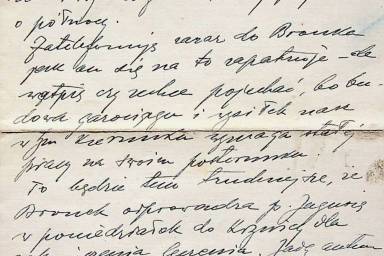 o północy.
Zatelefonuję zaraz do Bronka
jak on się na to zapatruje – ale
wątpię czy zechce pojechać, bo bu-
dowa garażu i wysiłek nasz
w tym kierunku wymaga stałej
pracy na swoim posterunku.
To będzie tem trudniejsze, że
Bronek odprowadza p.
w poniedziałek do dla
leczenia. Jadę autem